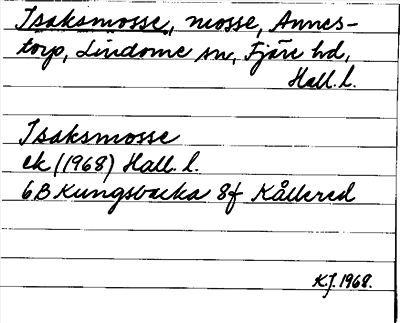 Isaksmosse, mosse, Annes-
torp, Lindome sn, Fjäre hd,
Hall. l.
Isaksmosse
ek (1968) Hall. l.
6B Kungsbacka 8f Kållered
K.J. 1968.